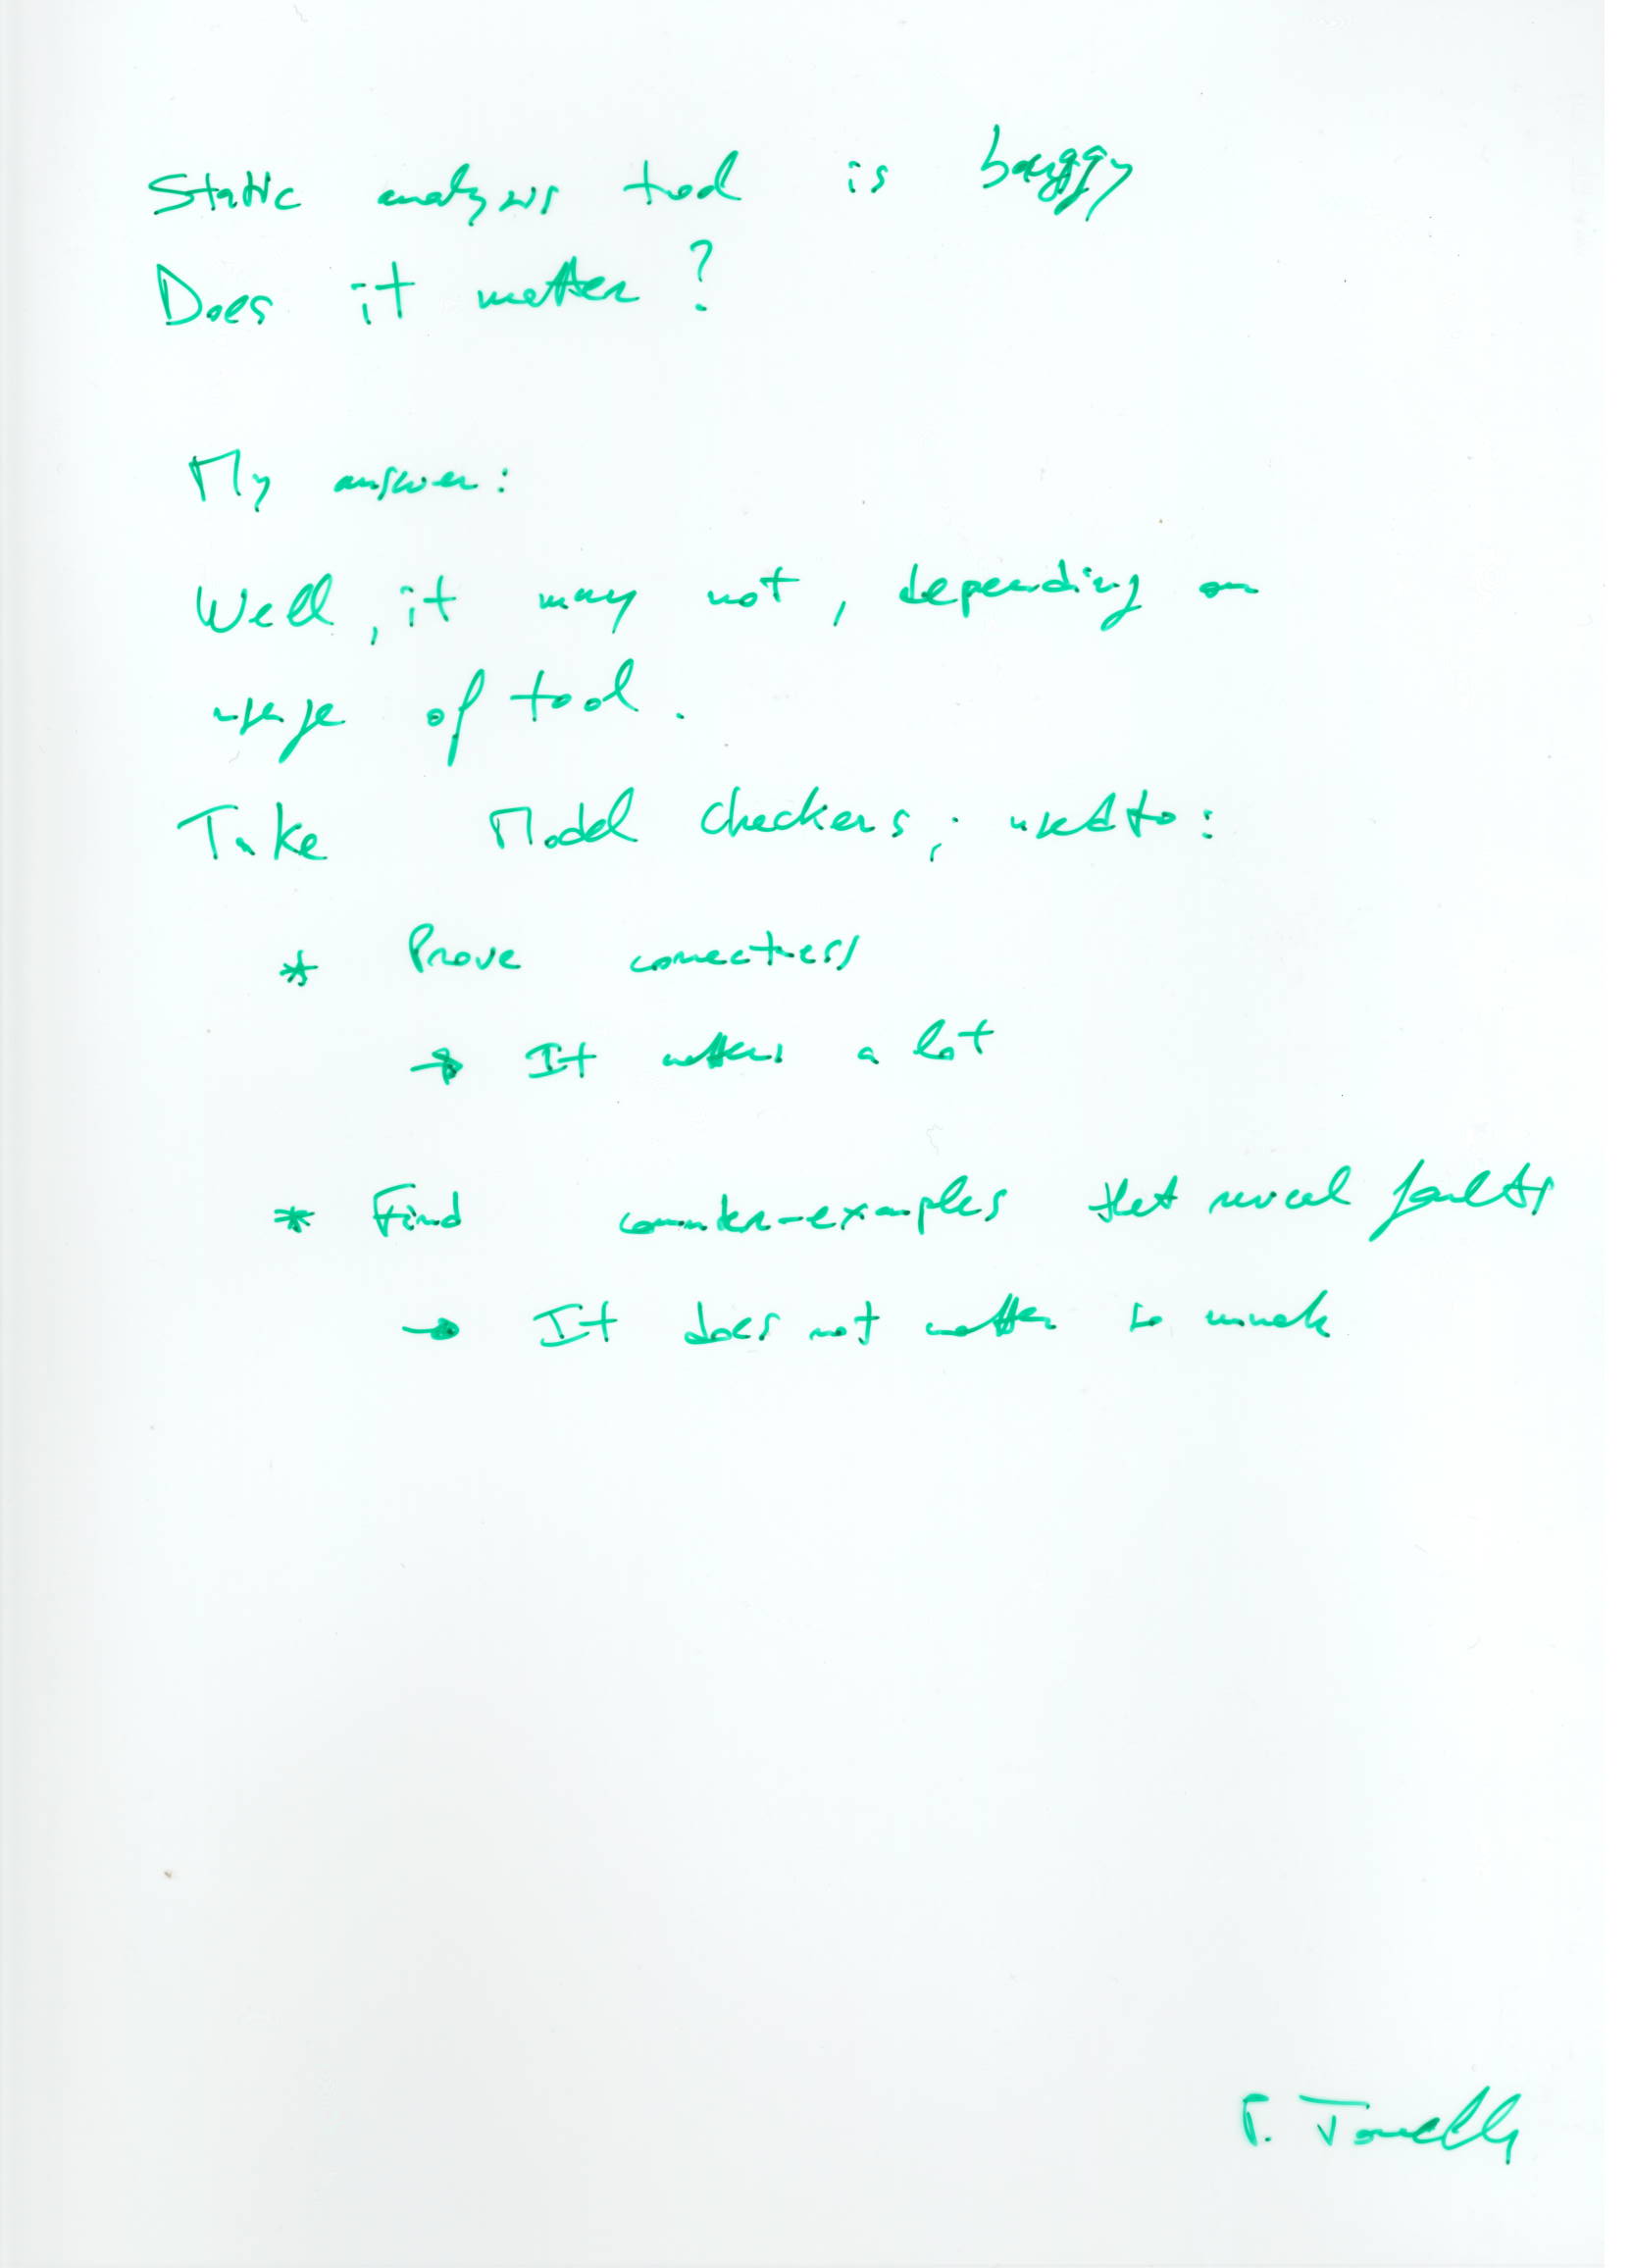 Static analysis tool is buggy
Does it matter ?
My answer:
Well, it may not, depending on
usage of tool.
Take Model checkers; used to:
* Prove correctness
→ It matters a lot
* Find counter-examples that reveal faults
→ It does not matter so much